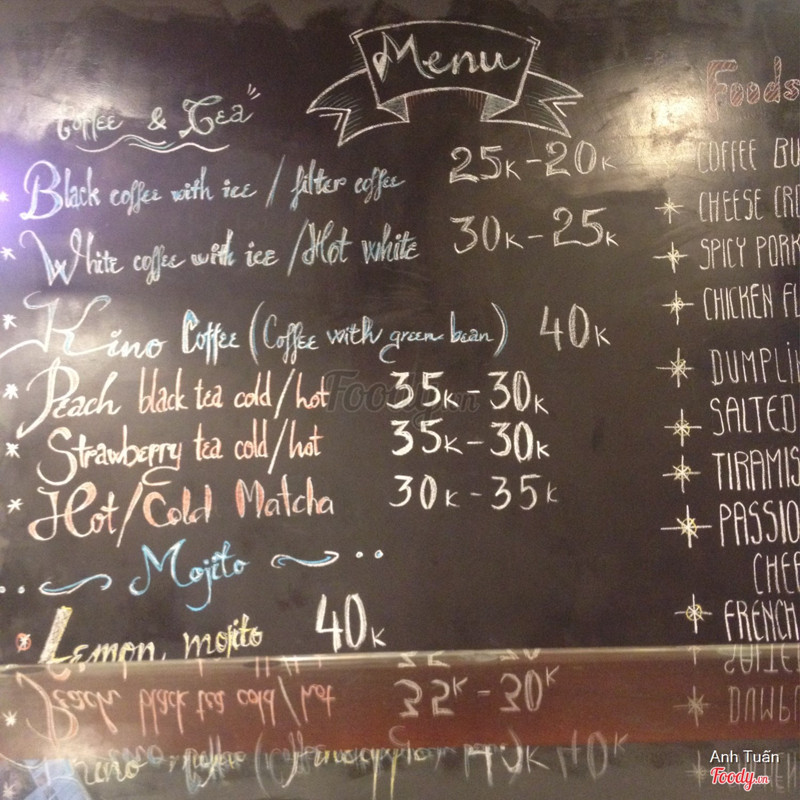 Menu
Coffee & Tea
Black coffee with ice / filter coffee 25K-20K
White coffee with ice / Hot white 30K-25K
Kino Coffee (Coffee with green bean) 40K
Peach black tea cold/hot 35K-30K
Strawberry tea cold/hot 35K-30K
Hot/Cold Matcha 30K-35K
Mojito
Lemon mojito 40K
Foods
COFFEE BU
CHEESE CRE
SPICY PORK
CHICKEN FL
DUMPLIN
SALTED
TIRAMIS
PASSIO
CHEE
FRENCH
Foody.vn
Anh Tuấn
Foody.vn